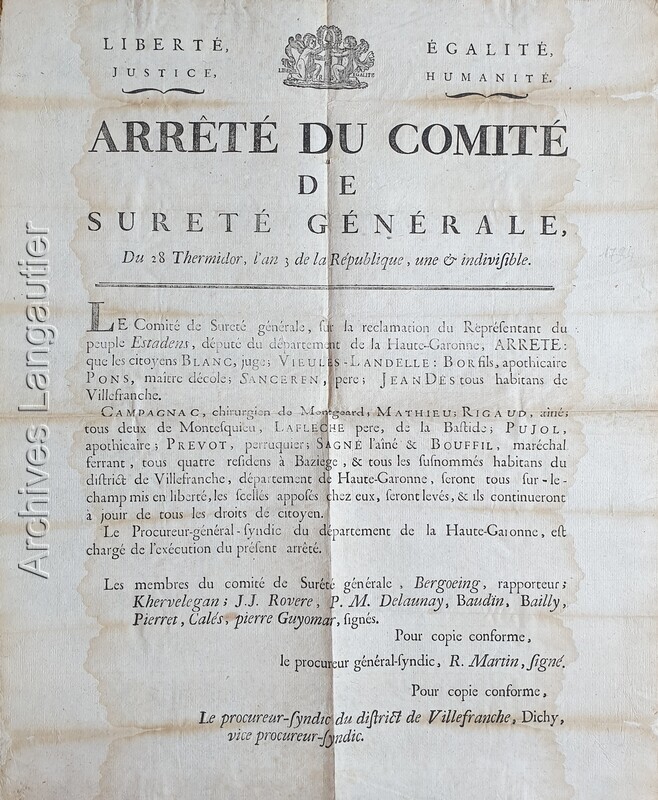 LIBERTÉ, ÉGALITÉ,
JUSTICE, HUMANITÉ.
ARRÊTÉ DU COMITÉ
DE
SURETÉ GÉNÉRALE,
Du 28 Thermidor, l'an 3 de la République, une & indiviſible.
LE Comité de Sureté générale, ſur la reclamation du Repréſentant du
peuple Estadens, député du département de la Haute-Garonne, ARRETE:
que les citoyens BLANC, juge; VIEULES-LANDELLE: BOR fils, apothicaire
PONS, maître décole; SANCEREN, pere; JEAN DÉS tous habitans de
Villefranche.
CAMPAGNAC, chirurgien de Montgeard, MATHIEU; RIGAUD, ainé;
tous deux de Monteſquieu, LAFLECHE pere, de la Baſtide; PUJOL,
apothicaire; PREVOT, perruquier; SAGNÉ l'aîné & BOUFFIL, maréchal
ferrant, tous quatre reſidens à Baziège, & tous les ſuſnommés habitans du
diſtrict de Villefranche, département de Haute-Garonne, ſeront tous ſur-le-
champ mis en liberté, les ſcellés appoſés chez eux, ſeront levés, & ils continueront
à jouir de tous les droits de citoyen.
Le Procureur-général-ſyndic du département de la Haute-Garonne, eſt
chargé de l'exécution du préſent arrêté.
Les membres du comité de Sureté générale, Bergoeing, rapporteur;
Khervelegan; J.J. Rovere, P. M. Delaunay, Baudin, Bailly,
Pierret, Calés, pierre Guyomar, ſignés.
Pour copie conforme,
le procureur général-ſyndic, R. Martin, ſigné.
Pour copie conforme,
Le procureur-ſyndic du diſtrict de Villefranche, Dichy,
vice procureur-ſyndic.
Archives Langautier